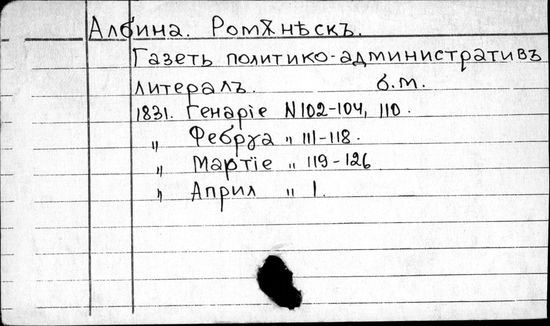 Албина. Ромѫнѣскъ.
Газеть политико-административъ
литералъ. б.м.
1831. Генаріе N 102-104, 110.
„ Февруа „ 111-118.
„ Мартіе „ 119-126
„ Април „ 1.